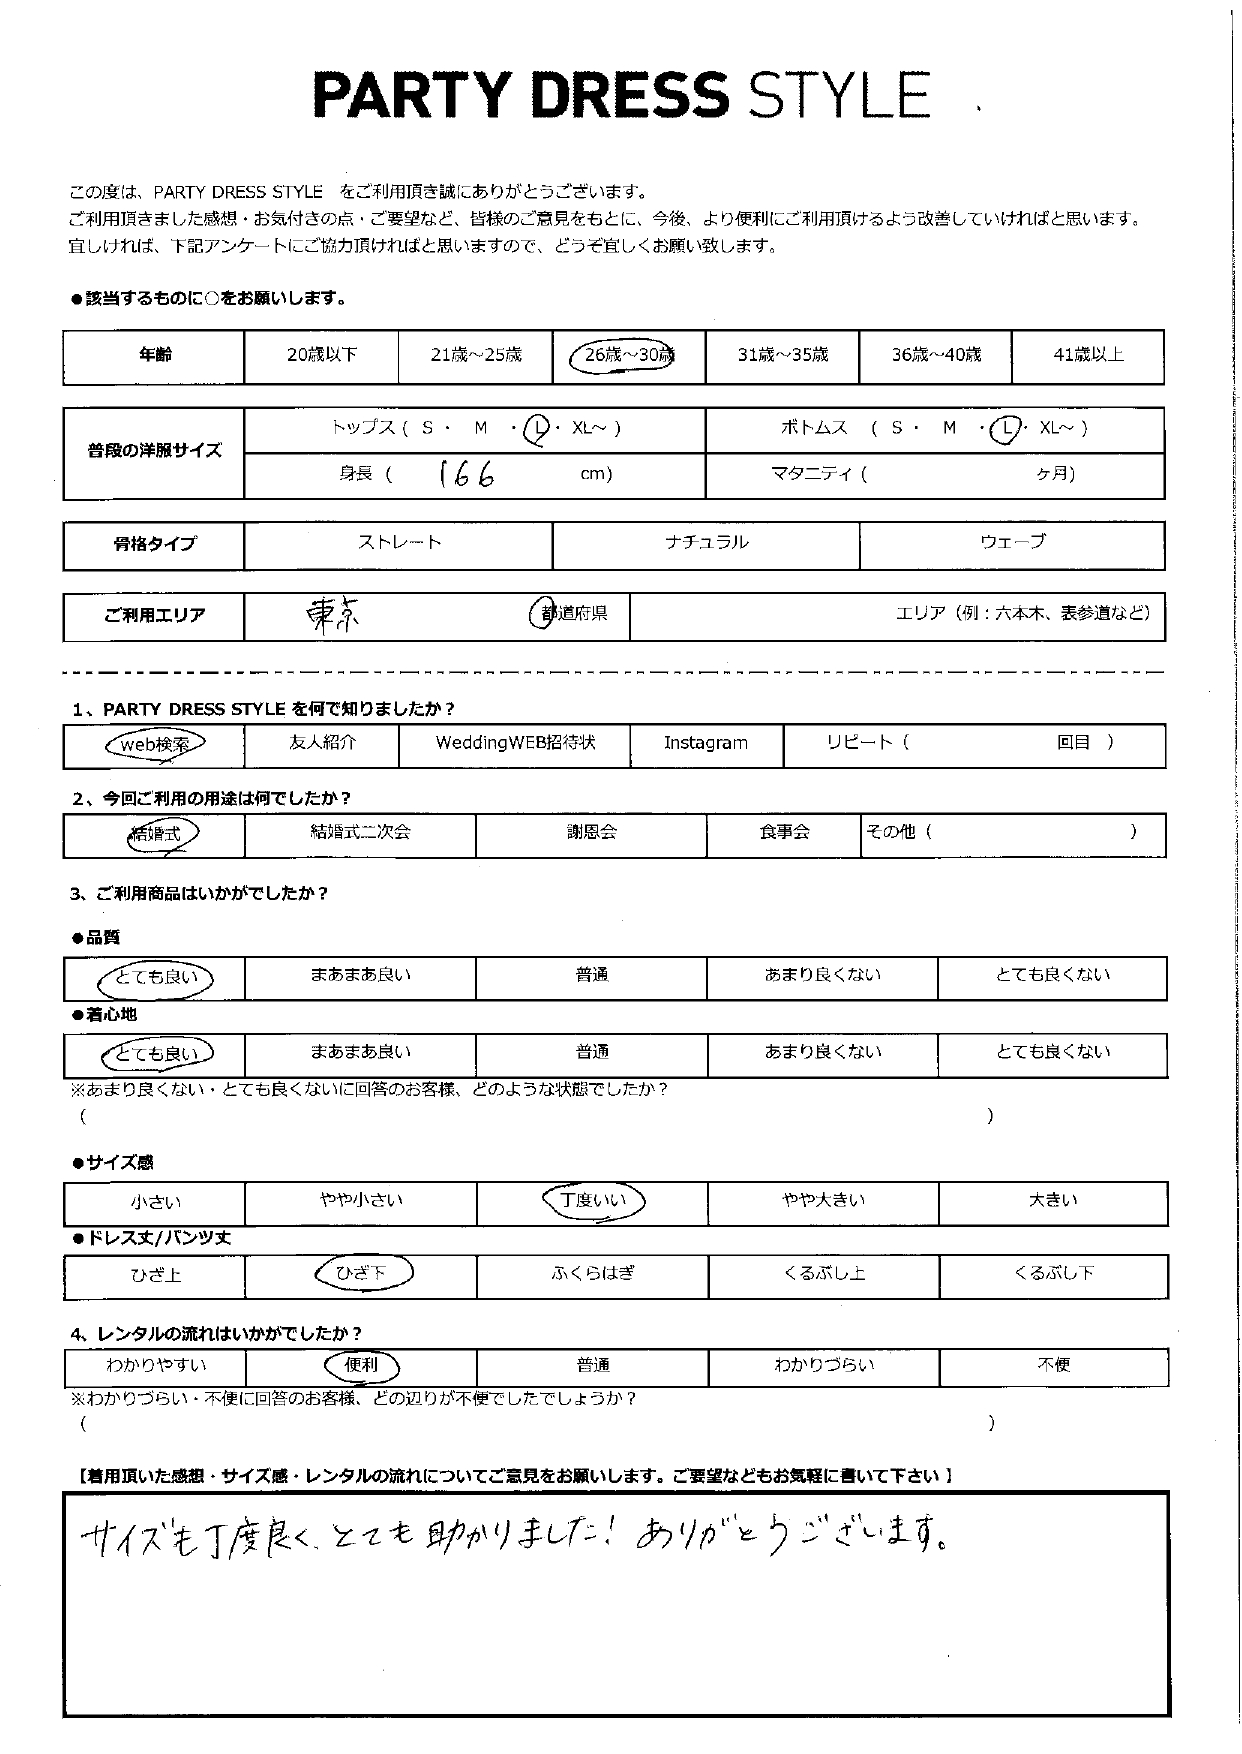 PARTY DRESS STYLE
この度は、PARTY DRESS STYLE をご利用頂き誠にありがとうございます。
ご利用頂きました感想・お気付きの点・ご要望など、皆様のご意見をもとに、今後、より便利にご利用頂けるよう改善していければと思います。
宜しければ、下記アンケートにご協力頂ければと思いますので、どうぞ宜しくお願い致します。
●該当するものに〇をお願いします。
年齢 20歳以下 21歳～25歳 26歳～30歳 31歳～35歳 36歳～40歳 41歳以上
普段の洋服サイズ トップス ( S ・ M ・ L ・ XL～ ) ボトムス ( S ・ M ・ L ・ XL～ )
身長 ( 166 cm) マタニティ ( ヶ月)
骨格タイプ ストレート ナチュラル ウェーブ
ご利用エリア 東京 都道府県 エリア（例：六本木、表参道など）
1、PARTY DRESS STYLE を何で知りましたか？
web検索 友人紹介 WeddingWEB招待状 Instagram リピート ( 回目 )
2、今回ご利用の用途は何でしたか？
結婚式 結婚式二次会 謝恩会 食事会 その他 ( )
3、ご利用商品はいかがでしたか？
●品質
とても良い まあまあ良い 普通 あまり良くない とても良くない
●着心地
とても良い まあまあ良い 普通 あまり良くない とても良くない
※あまり良くない・とても良くないに回答のお客様、どのような状態でしたか？
( )
●サイズ感
小さい やや小さい 丁度いい やや大きい 大きい
●ドレス丈/パンツ丈
ひざ上 ひざ下 ふくらはぎ くるぶし上 くるぶし下
4、レンタルの流れはいかがでしたか？
わかりやすい 便利 普通 わかりづらい 不便
※わかりづらい・不便に回答のお客様、どの辺りが不便でしたでしょうか？
( )
【着用頂いた感想・サイズ感・レンタルの流れについてご意見をお願いします。ご要望などもお気軽に書いて下さい】
サイズも丁度良く、とても助かりました！ ありがとうございます。